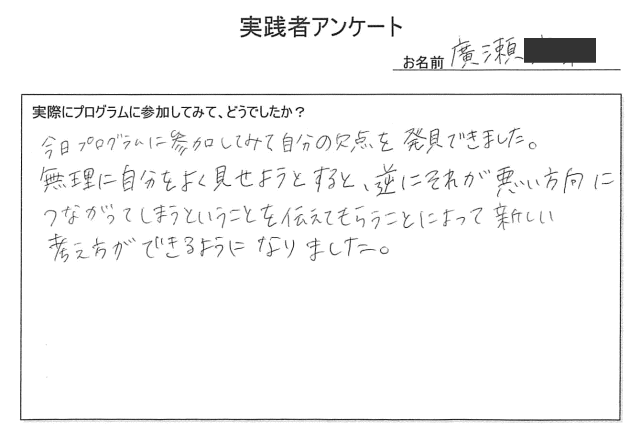 実践者アンケート
お名前 廣瀬
実際にプログラムに参加してみて、どうでしたか？
今日プログラムに参加してみて自分の欠点を発見できました。
無理に自分をよく見せようとすると、逆にそれが悪い方向に
つながってしまうということを伝えてもらうことによって新しい
考え方ができるようになりました。